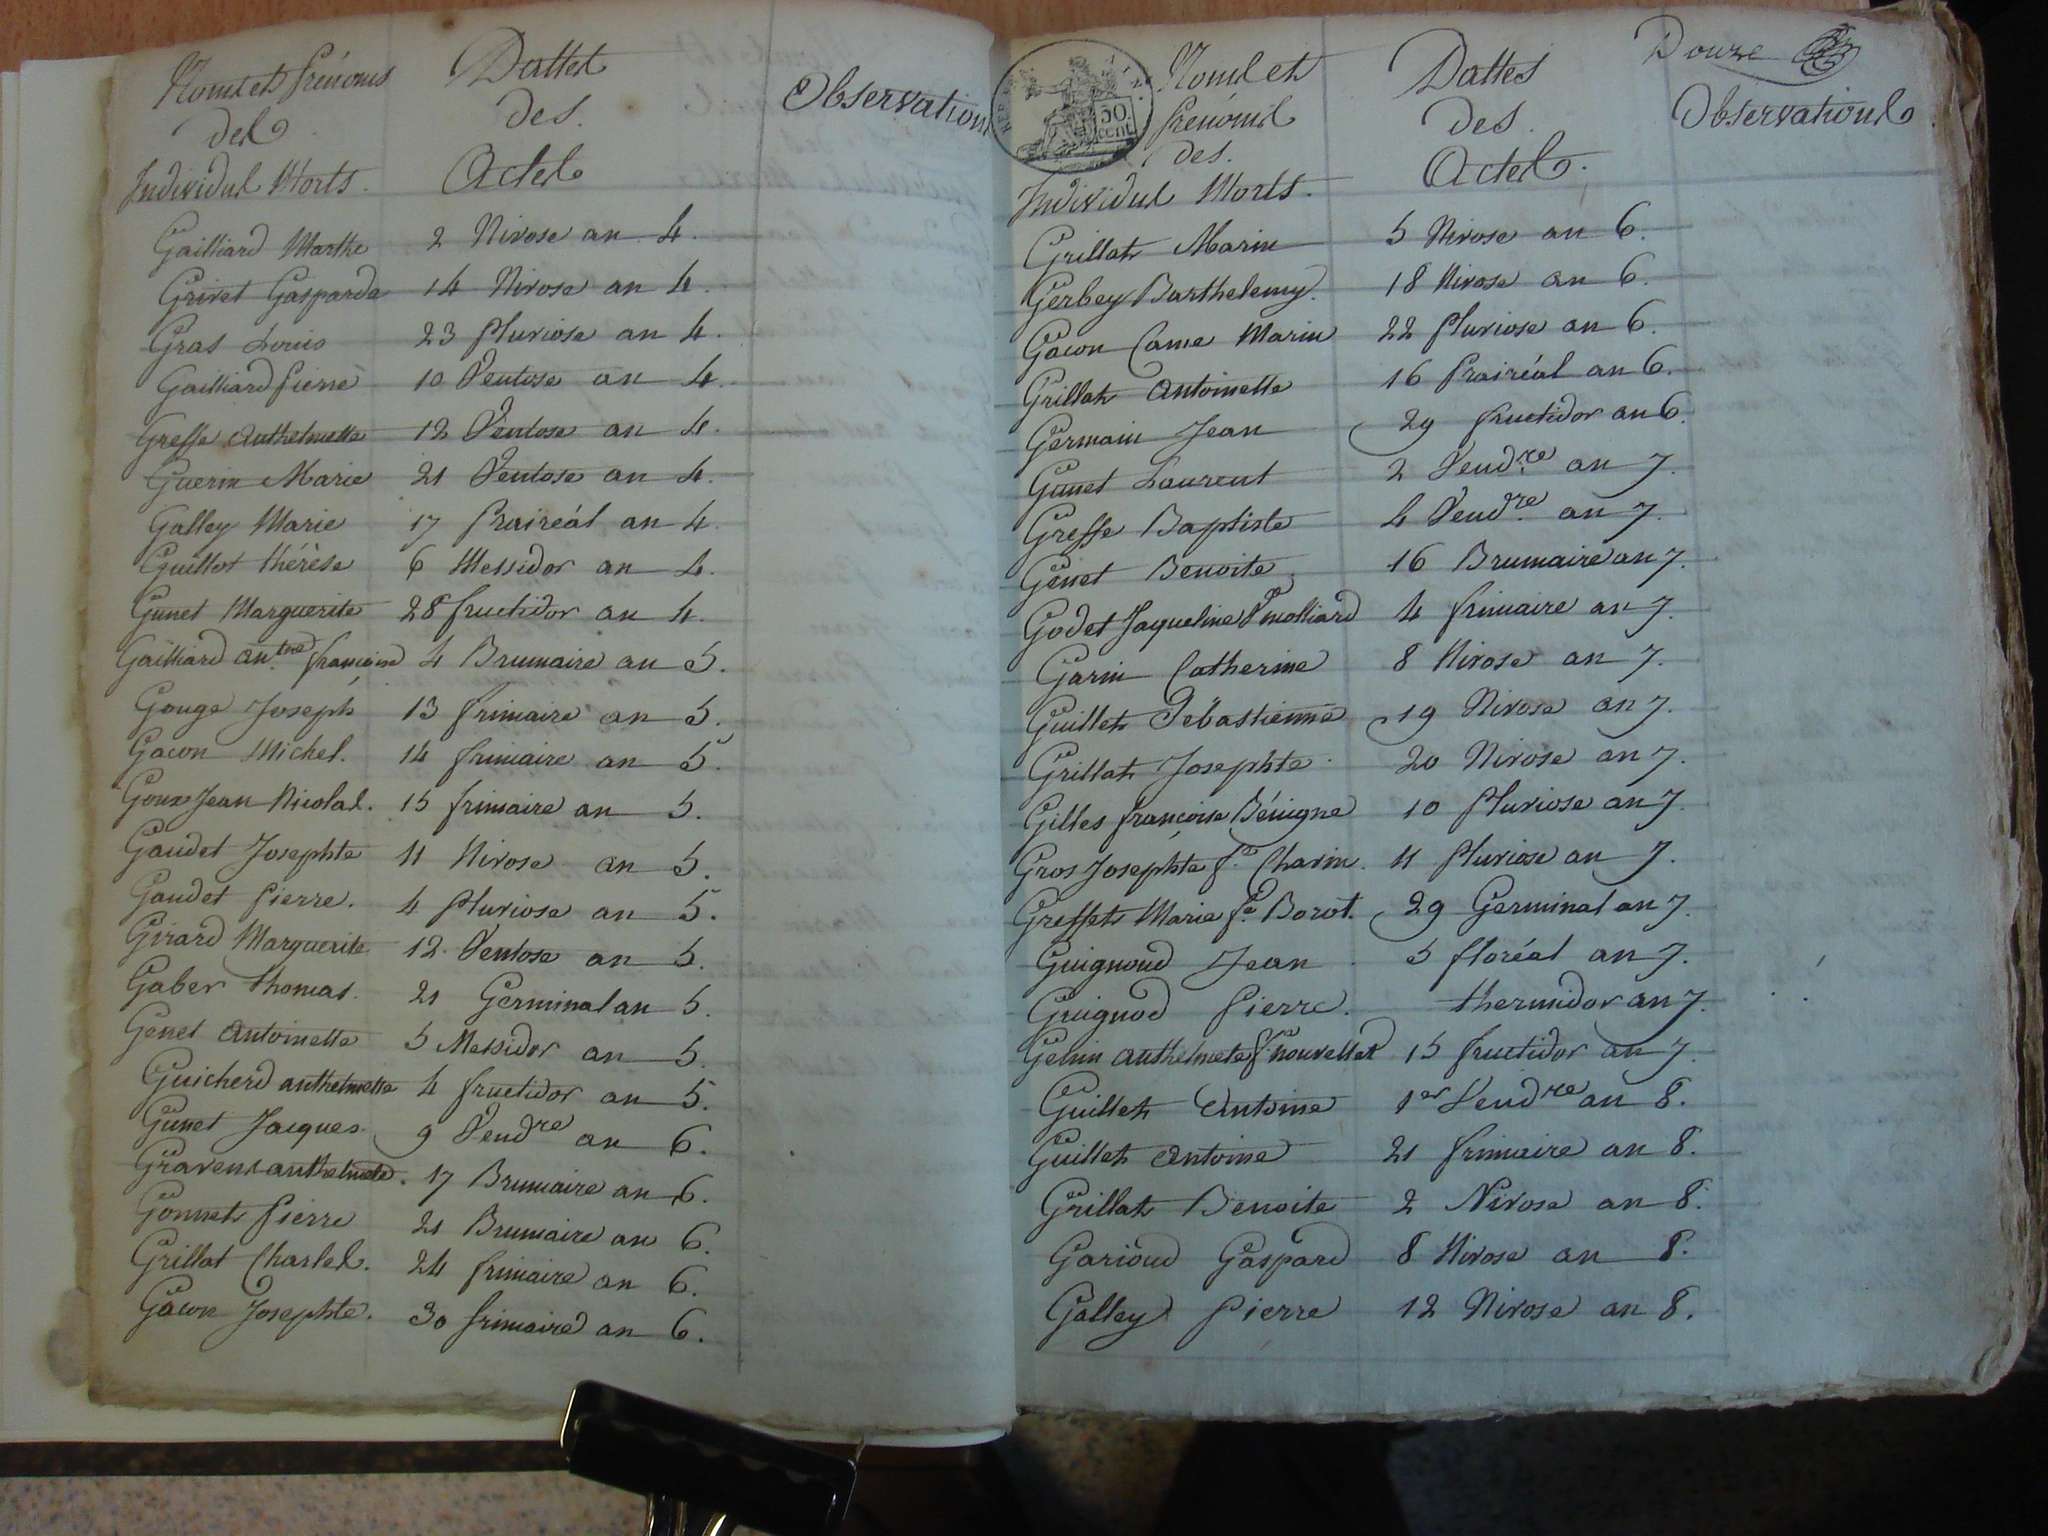 Noms et prénoms
des
Individus Morts.
Dattes
des
Actes
Observations
Gailliard Marthe 2 Nivose an 4.
Grivet Gasparde 14 Nivose an 4.
Gras Louis 23 Pluviose an 4.
Gailliard Pierre 10 Ventose an 4.
Greffe Anthelmette 12 Ventose an 4.
Guerin Marie 21 Ventose an 4.
Galley Marie 17 Prairéal an 4.
Guillot thérèse 6 Messidor an 4.
Gunet Marguerite 28 fructidor an 4.
Gailliard an.tne françoise 4 Brumaire an 5.
Gouge Joseph 13 frimaire an 5.
Gacon Michel. 14 frimaire an 5.
Goux Jean Nicolas. 15 frimaire an 5.
Gaudet Josephte 11 Nivose an 5.
Gaudet Pierre. 4 Pluviose an 5.
Girard Marguerite 12 Ventose an 5.
Gaber thomas. 21 Germinal an 5.
Genet Antoinette 5 Messidor an 5.
Guicherd anthelmette 4 fructidor an 5.
Gunet Jacques. 9 Vendre an 6.
Gravens anthelmete. 17 Brumaire an 6.
Gonnet Pierre 21 Brumaire an 6.
Grillat Charles. 24 frimaire an 6.
Gacon Josephte. 30 frimaire an 6.
REP.
50
cent.
Douze
Noms et
Prénoms
des.
Individus Morts.
Dattes
des
Actes.
Observations
Grillat Marin 5 Nivose an 6.
Gerbey Barthelemy. 18 Nivose an 6.
Gacon Came Marin 22 Pluviose an 6.
Grillat Antoinette 16 Prairéal an 6.
Germain Jean 29 fructidor an 6.
Gunet Laurent 2 Vendre an 7.
Greffe Baptiste 4 Vendre an 7.
Genet Benoite 16 Brumaire an 7.
Godet Jaqueline Vuolliard 4 frimaire an 7.
Garin Catherine 8 Nivose an 7.
Guillet Sébastienne 19 Nivose an 7.
Grillat Josephte 20 Nivose an 7.
Gilles françoise Bénigne 10 Pluviose an 7.
Gros Josephte fe Charin 11 Pluviose an 7.
Greffet Marie fe Borot. 29 Germinal an 7.
Guignoud Jean 5 floréal an 7.
Guignod Pierre. thermidor an 7.
Genin anthelmete fe nouvellet 15 fructidor an 7.
Guillet Antoine 1er Vendre an 8.
Guillet Antoine 21 frimaire an 8.
Grillat Benoite 2 Nivose an 8.
Garioud Gaspard 8 Nivose an 8.
Galley Pierre 12 Nivose an 8.